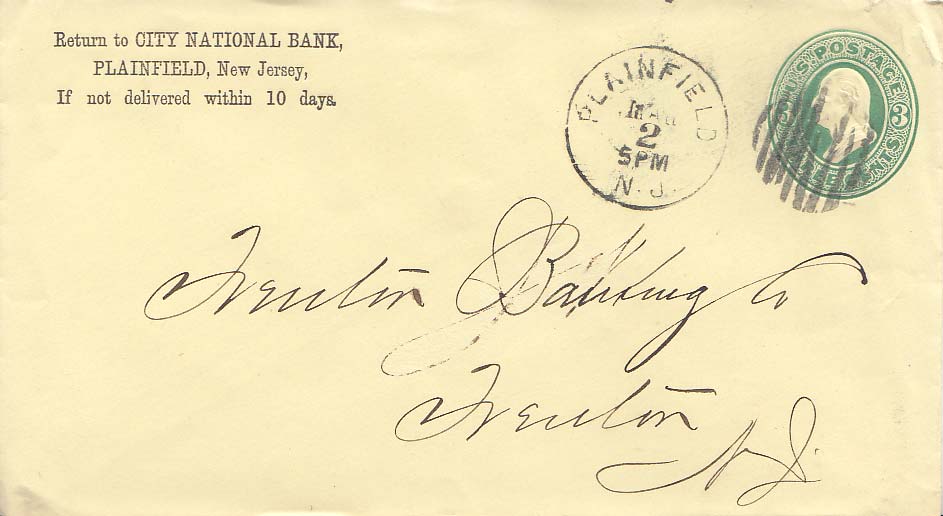 Return to CITY NATIONAL BANK,
PLAINFIELD, New Jersey,
If not delivered within 10 days.
PLAINFIELD
MAR
2
5PM
N.J.
U.S. POSTAGE
3 3
CENTS
Trenton Banking Co
Trenton
N.J.